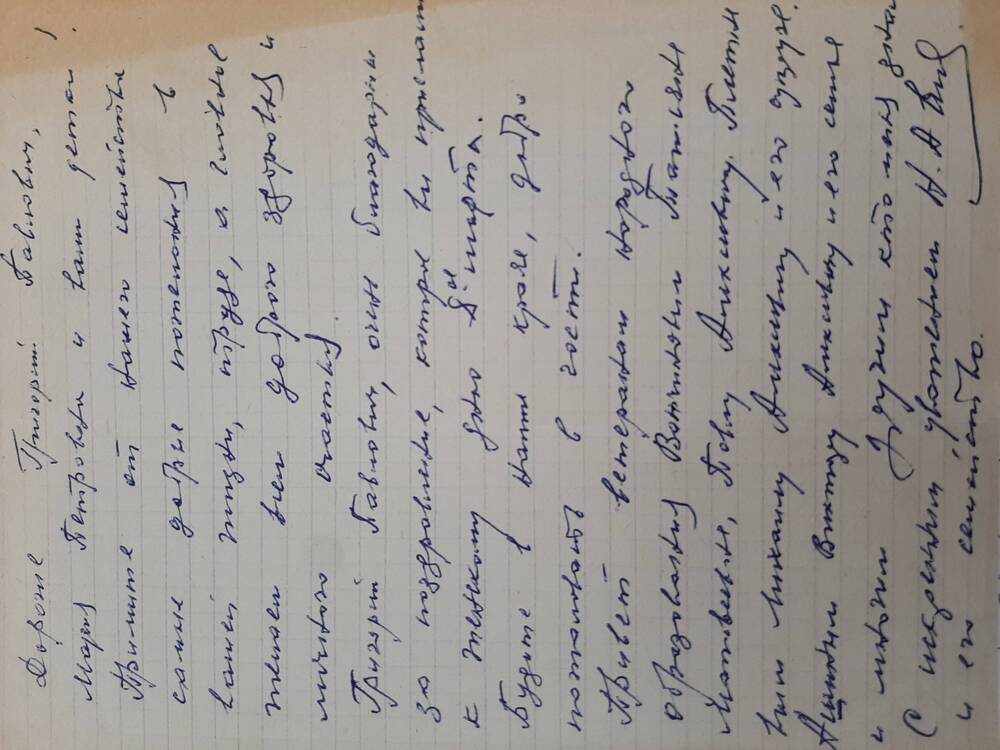 Дорогие Григорий Павлович,
Мария Петровна и ваши детки!
Примите от нашего семейства
самые добрые пожелания в
вашей жизни, труде, а главное
желаем всем доброго здоровья и
личного счастья.
Григорий Павлович, очень благодарны
за поздравление, которое вы прислали
к женскому дню 8ое марта.
Будите в нашем крае, добро
пожаловать в гости.
Привет ветеранам народного
образования Татьяне
Матвеевне, Павлу Алексеевичу. Плетне
вым Михаилу Алексеевичу и его супруге.
Виктору Алексеевичу и его семье
и многим другим кто меня знал
С искренним уважением Н. А.
и его семейство.